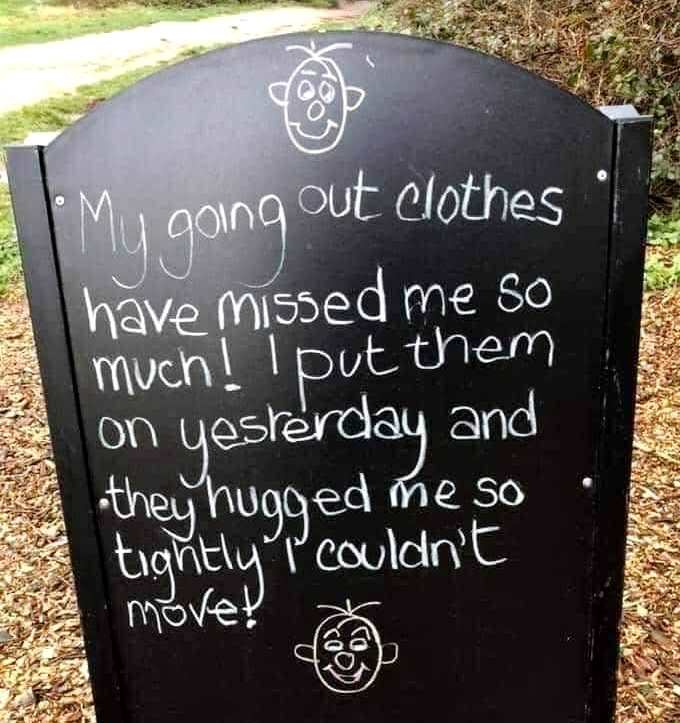 My going out clothes
have missed me so
much! I put them
on yesterday and
they hugged me so
tightly I couldn't
move!